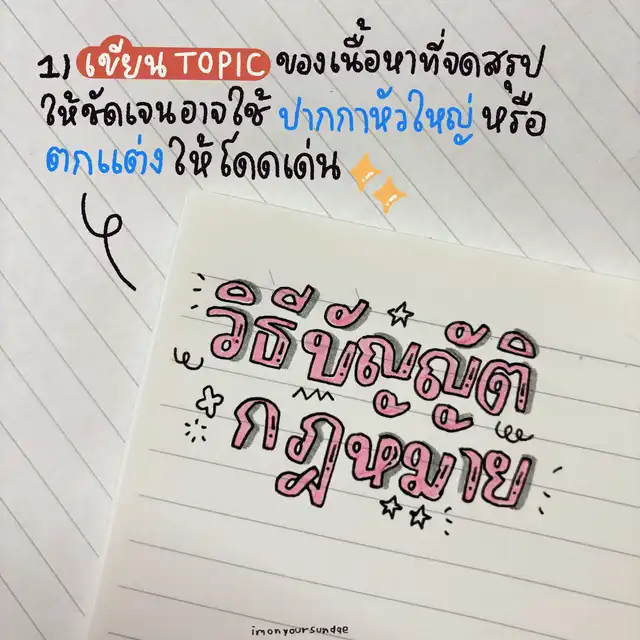 1) เขียน TOPIC ของเนื้อหาที่จดสรุป
ให้ชัดเจนอาจใช้ ปากกาหัวใหญ่ หรือ
ตกแต่ง ให้โดดเด่น
วิธีบัญญัติ
กฎหมาย
imonyoursundae